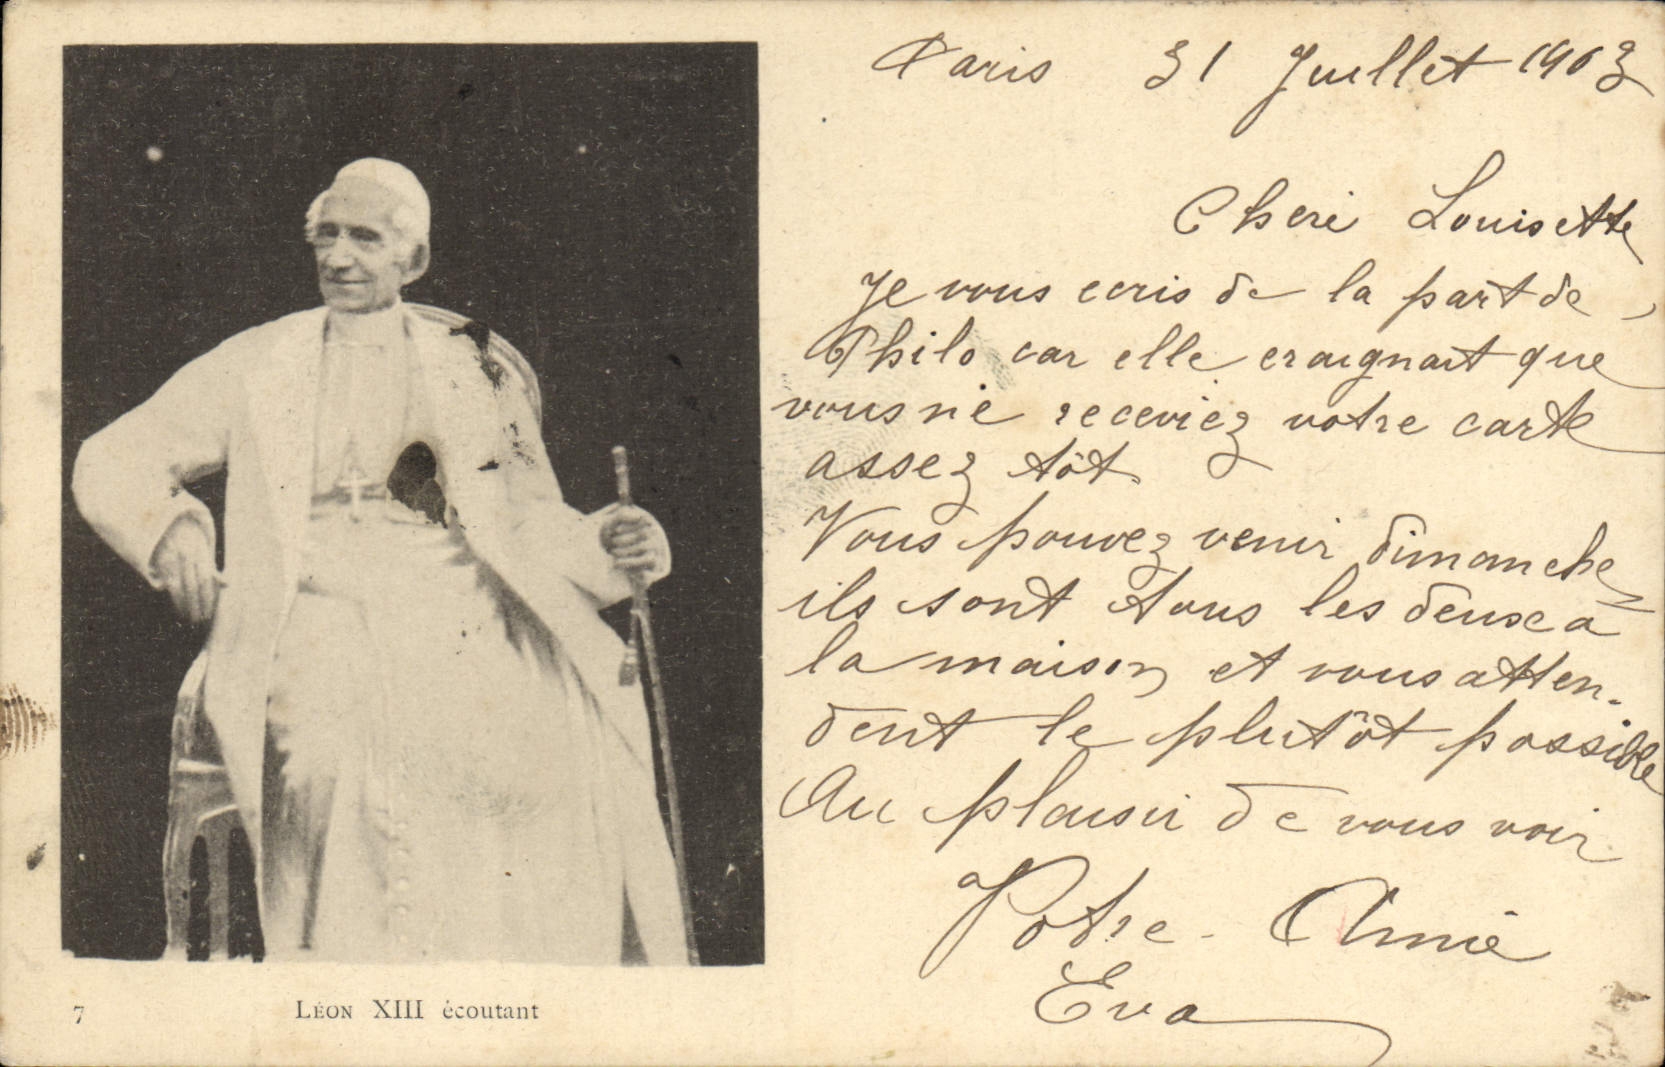 Paris 31 Juillet 1903
Cheri Louisette
Je vous ecris de la part de
Philo car elle craignait que
vous ne receviez votre carte
assez tôt.
Vous pouvez venir dimanche
ils sont tous les deux a
la maison et vous atten-
dent le plutôt possible
Au plaisir de vous voir
Votre Amie
Eva
7 LÉON XIII écoutant